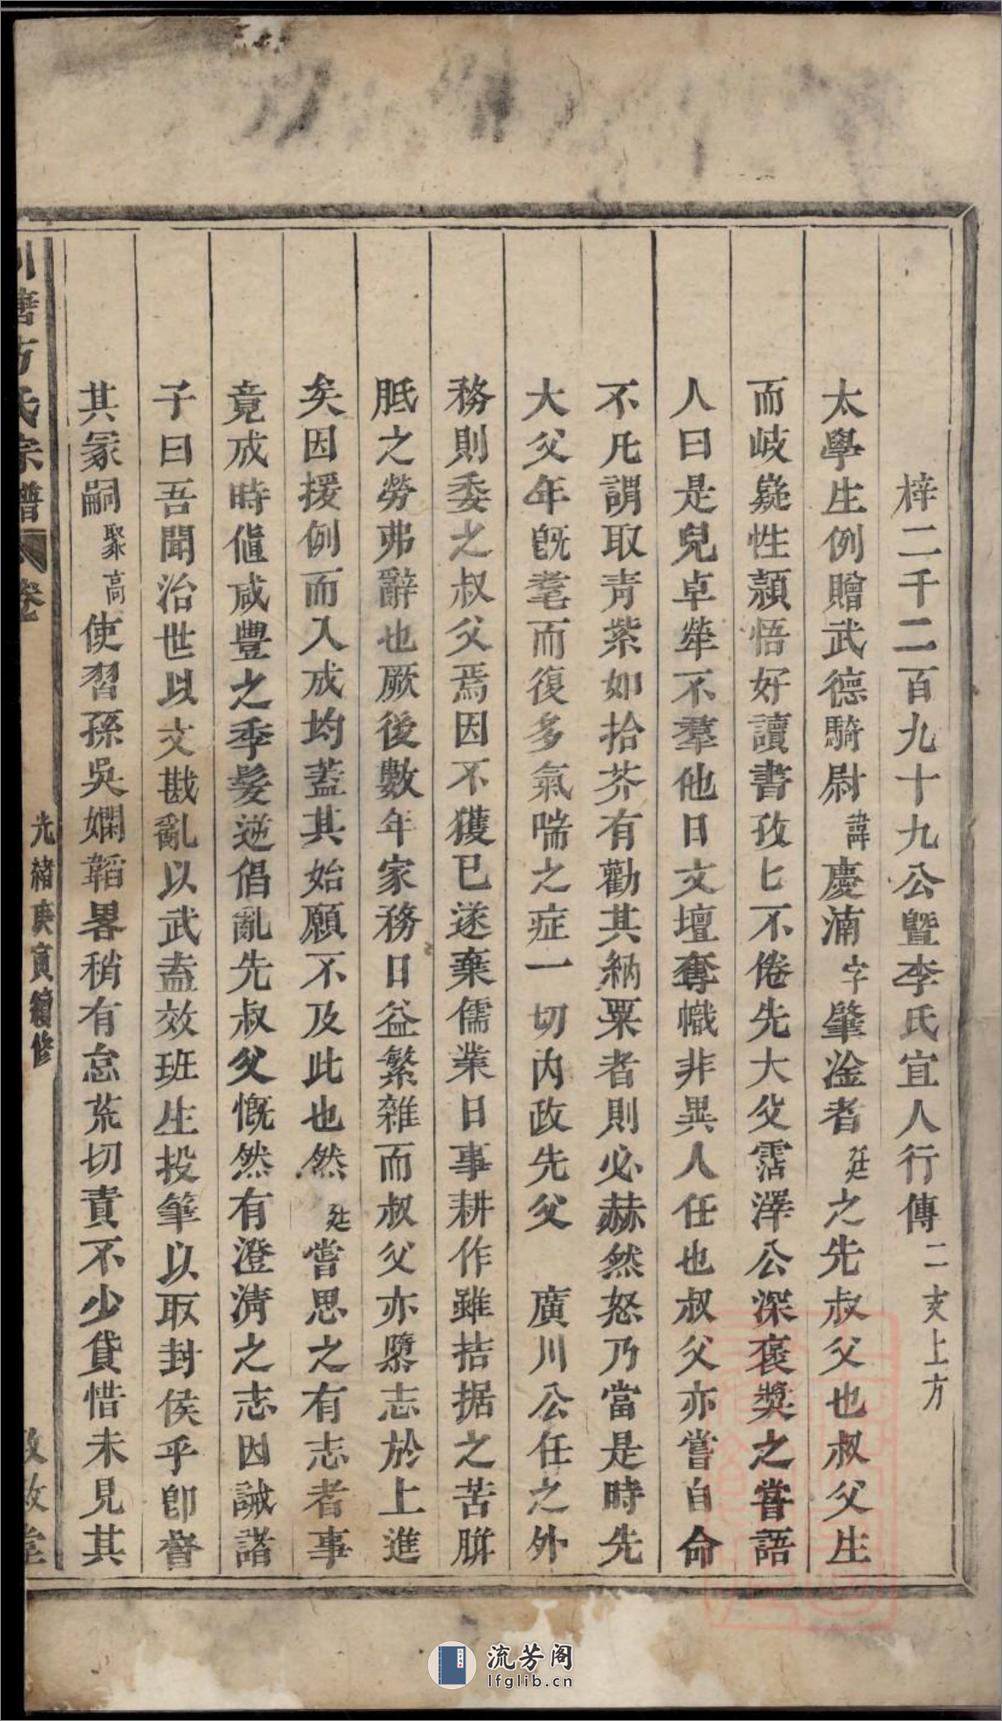 梓二千二百九十九公暨李氏宜人行傳二支上方
太學生例贈武德騎尉諱慶湳字肇淦者廷之先叔父也叔父生
而岐嶷性頴悟好讀書孜匕不倦先大父霑澤公深褒獎之嘗語
人曰是兒卓犖不羣他日文壇奪幟非異人任也叔父亦嘗自命
不凡謂取青紫如拾芥有勸其納粟者則必赫然怒乃當是時先
大父年旣耄而復多氣喘之症一切內政先父 廣川公任之外
務則委之叔父焉因不獲已遂棄儒業日事耕作雖拮据之苦胼
胝之勞弗辭也厥後數年家務日益繁雜而叔父亦隳志於上進
矣因援例而入成均蓋其始願不及此也然廷嘗思之有志者事
竟成時値咸豐之季髮逆倡亂先叔父慨然有澄清之志因誡諸
子曰吾聞治世以文戡亂以武盍效班生投筆以取封侯乎卽督
其冢嗣聚高使習孫吳嫻韜畧稍有怠荒切責不少貸惜未見其
塘方氏宗譜 卷 光緒庚寅續修 敦堂
流芳阁
lfglib.cn